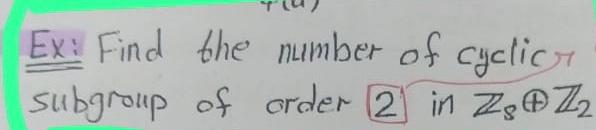 Ex: Find the number of cyclic
subgroup of order 2 in Z₈⊕Z₂